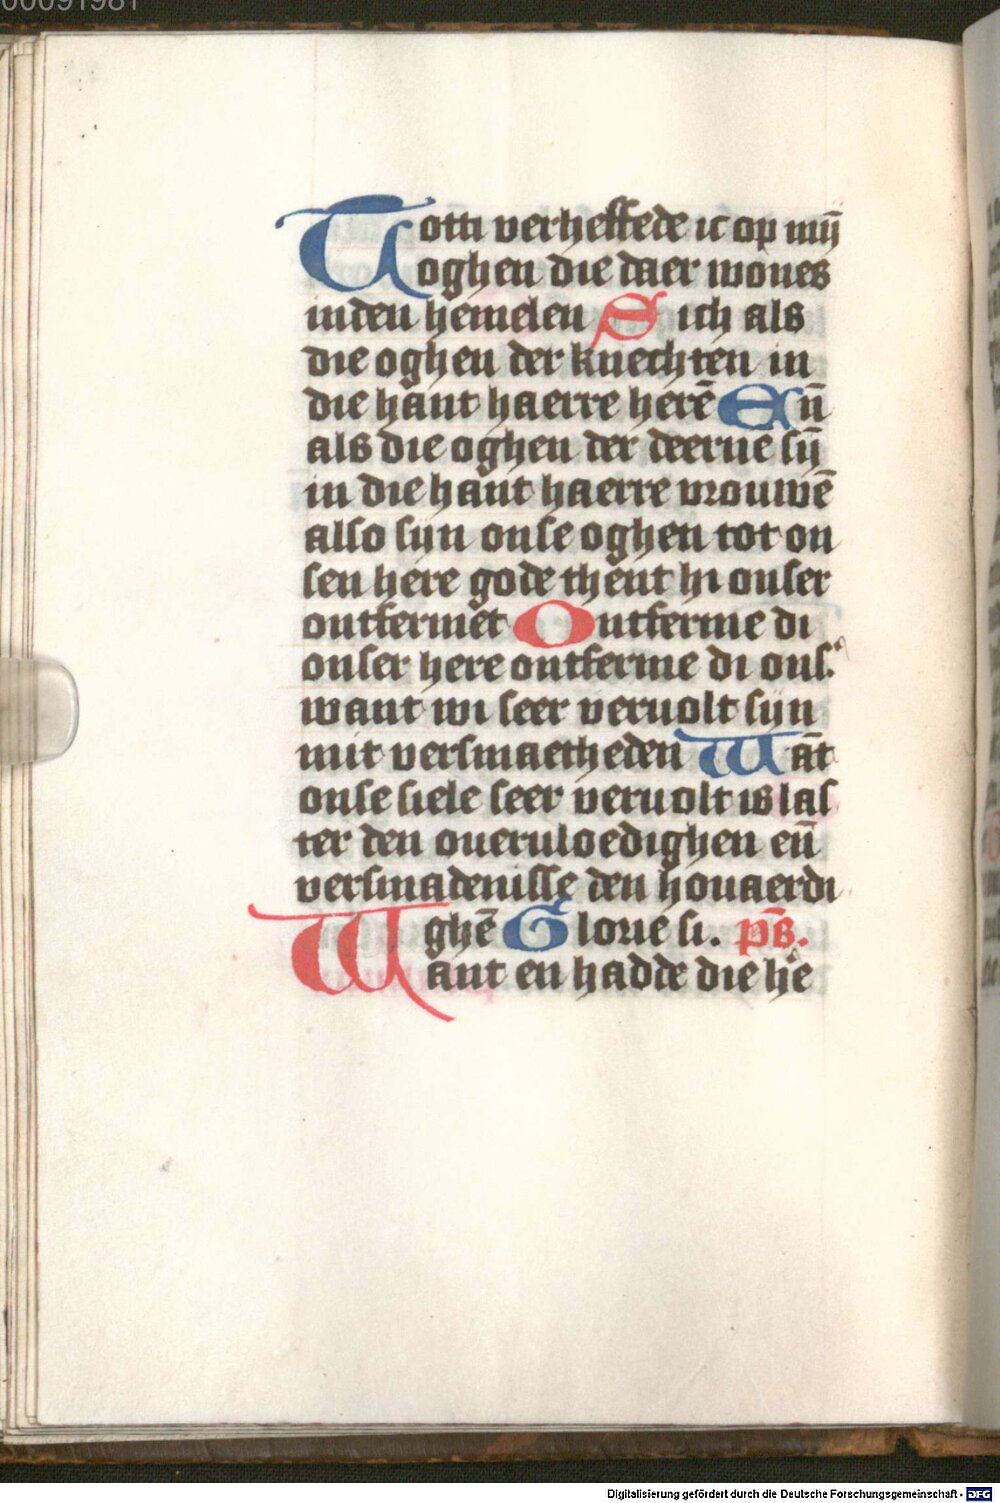 00091981
Totti verheffede ic op mij̄
oghen die daer wones
inden hemelen Sich als
die oghen der knechten in
die hant haerre herē Eñ
als die oghen der deerne sij̄
in die hant haerre vrouwē
also sijn onse oghen tot on
sen here gode thent hi onser
ontfermet Ontferme di
onser here ontferme di ons.
want wi seer veruolt sijn
mit versmaetheden Wāt
onse siele seer veruolt is las
ter den oueruloedighen eñ
versmadenisse den houaerdi
ghē Glorie si. ps̄.
Want en hadde die hē
Digitalisierung gefördert durch die Deutsche Forschungsgemeinschaft - DFG